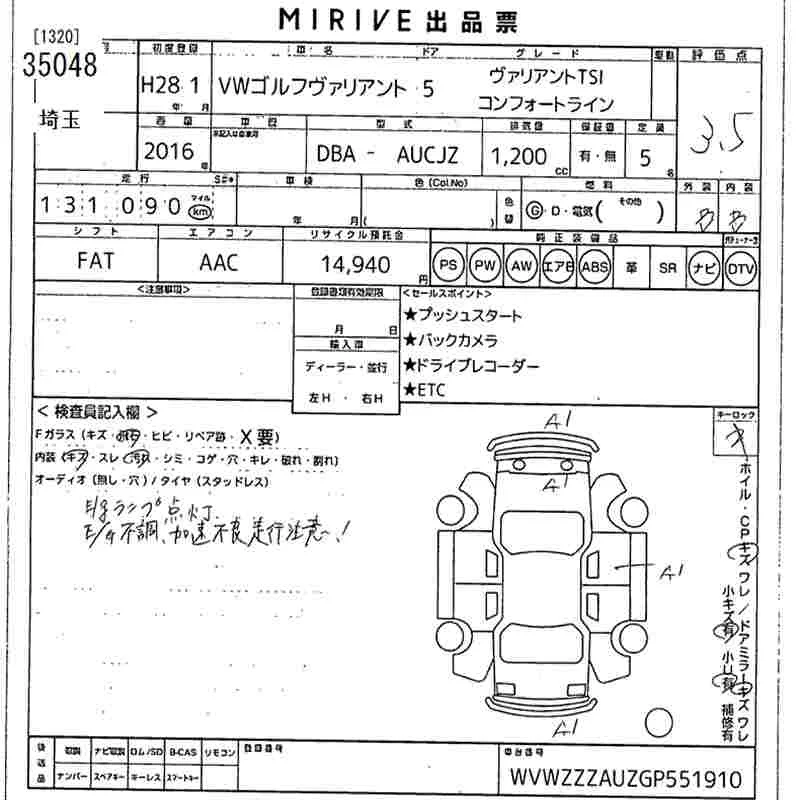 MIRIVE 出品票
[1320]
35048
埼玉
初度登録 車名 ドア グレード 駆動 評価点
H28 1 VWゴルフヴァリアント 5 ヴァリアントTSI
コンフォートライン
年 月
3.5
車歴 型式 排気量 保証書 定員
2016 年 DBA - AUCJZ 1,200 cc 有・無 5 名
走行 車検 色(Col.No) 燃料 外装 内装
131,090 マイル km 年 月 ( ) 色替 G・D・電気( その他 ) B B
シフト エアコン リサイクル預託金 純正装備品
FAT AAC 14,940 円 PS PW AW エアB ABS 革 SR ナビ DTV
<注意事項> 登録書類有効期限 <セールスポイント>
月 日 ★プッシュスタート
輸入車 ★バックカメラ
ディーラー・並行 ★ドライブレコーダー
左H・右H ★ETC
<検査員記入欄> キーロック
Fガラス(キズ・ ・ヒビ・リペア跡・X要)
内装(キズ・スレ・汚れ・シミ・コゲ・穴・キレ・破れ・割れ)
オーディオ(無し・穴)/タイヤ(スタッドレス)
ランプ点灯
E/G不調、加速不良走行注意!
A1
A1
A1
A1
ホイル・CPキズ ワレ/ドアミラーキズ ワレ
小キズ有 小U有 補修有
後送品 取説 ナビ取説 ロム/SD B-CAS リモコン 登録番号 車台番号
ナンバー スペアキー キーレス スマートキー WVWZZZAUZGP551910